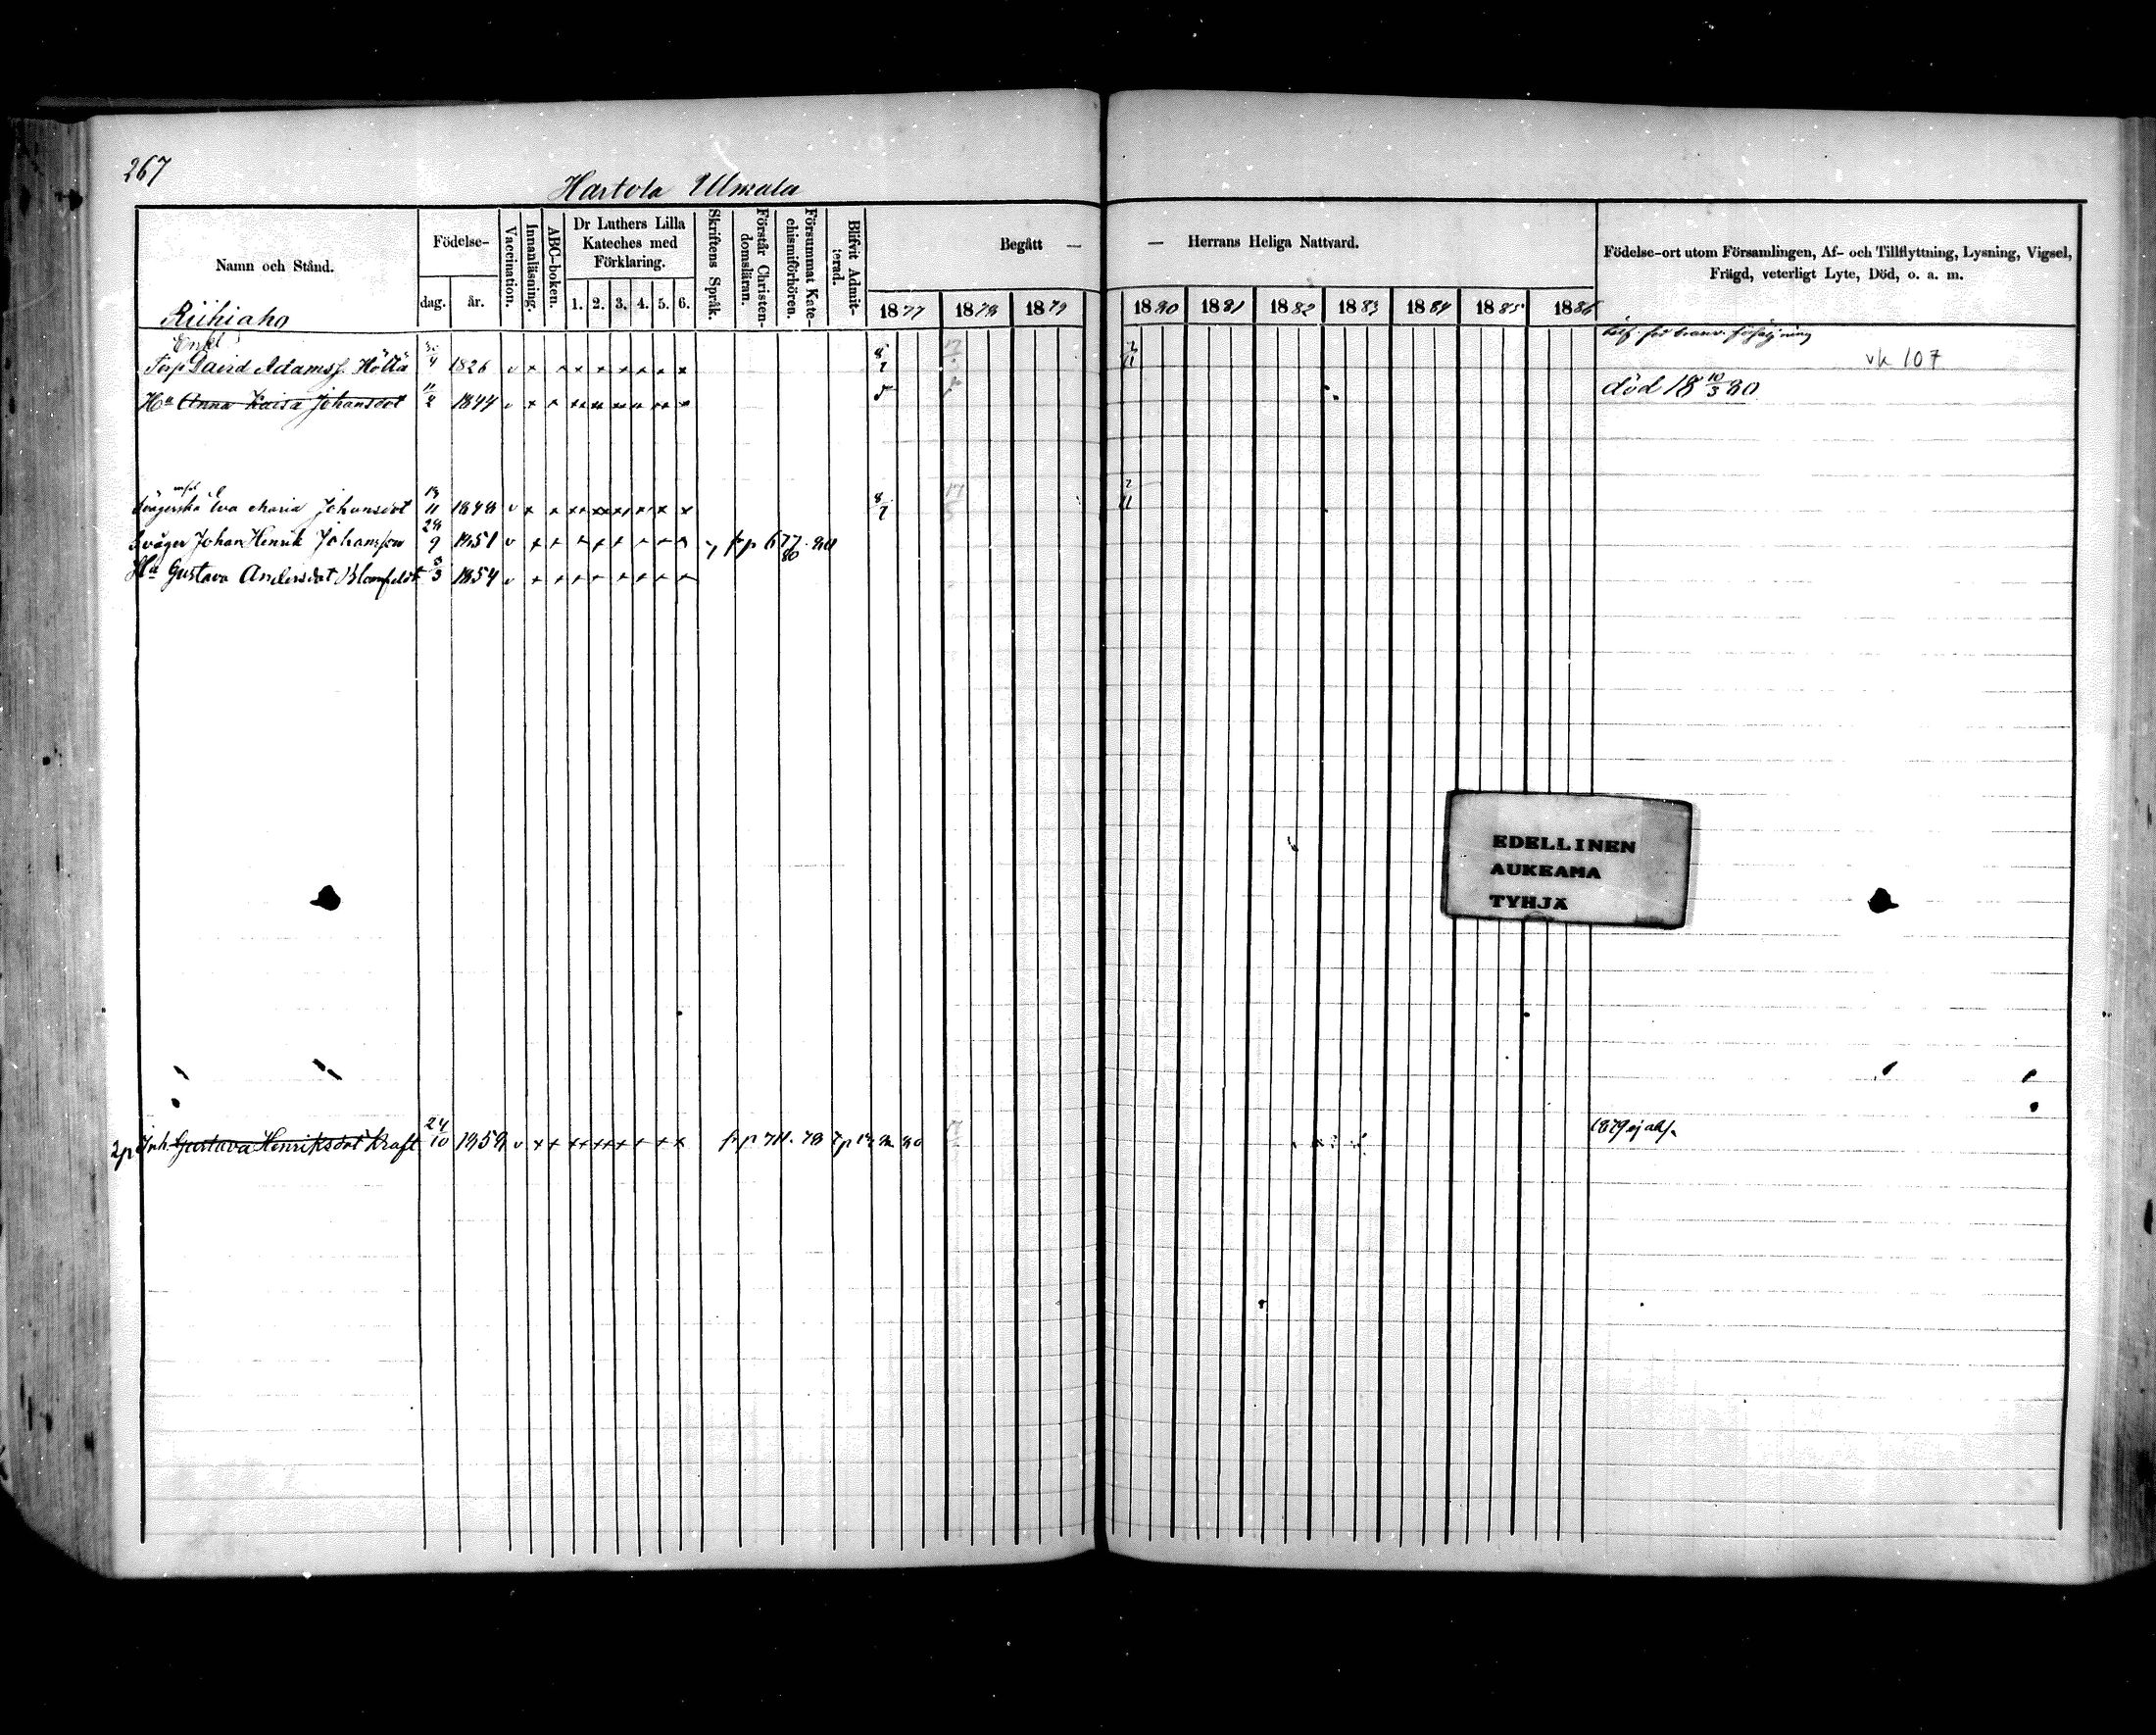 267
Hartola Ulmala
Namn och Stånd.
Födelse-
dag.
år.
Vaccination.
Innanläsning.
ABC-boken.
Dr Luthers Lilla
Kateches med
Förklaring.
1. 2. 3. 4. 5. 6.
Skriftens Språk.
Förstår Christen-
domsläran.
Försummat Kate-
chismiförhören.
Blifvit Admit-
terad.
Begått —
— Herrans Heliga Nattvard.
1877 1878 1879
1880 1881 1882 1883 1884 1885 1886
Födelse-ort utom Församlingen, Af- och Tillflyttning, Lysning, Vigsel,
Frägd, veterligt Lyte, Död, o. a. m.
Riihiaho
Enkl
Torp David Adamss. Höltä 30/4 1826 v x x x x x x x x 8/7 17 2/11 vk 107
Hu Anna Kaisa Johansdot 11/2 1844 död 18 10/3 80
Svägerska Eva Maria Johansdot 13/11 1848 v 8/7 17 2/11
Sväger Johan Henrik Johansson 28/9 1851 v
Hu Gustava Andersdot Blomfelt 3/3 1854 v
EDELLINEN
AUKEAMA
TYHJÄ
2p Inh. Gustava Henriksdot Kraft 24/10 1858 v 1879 ej